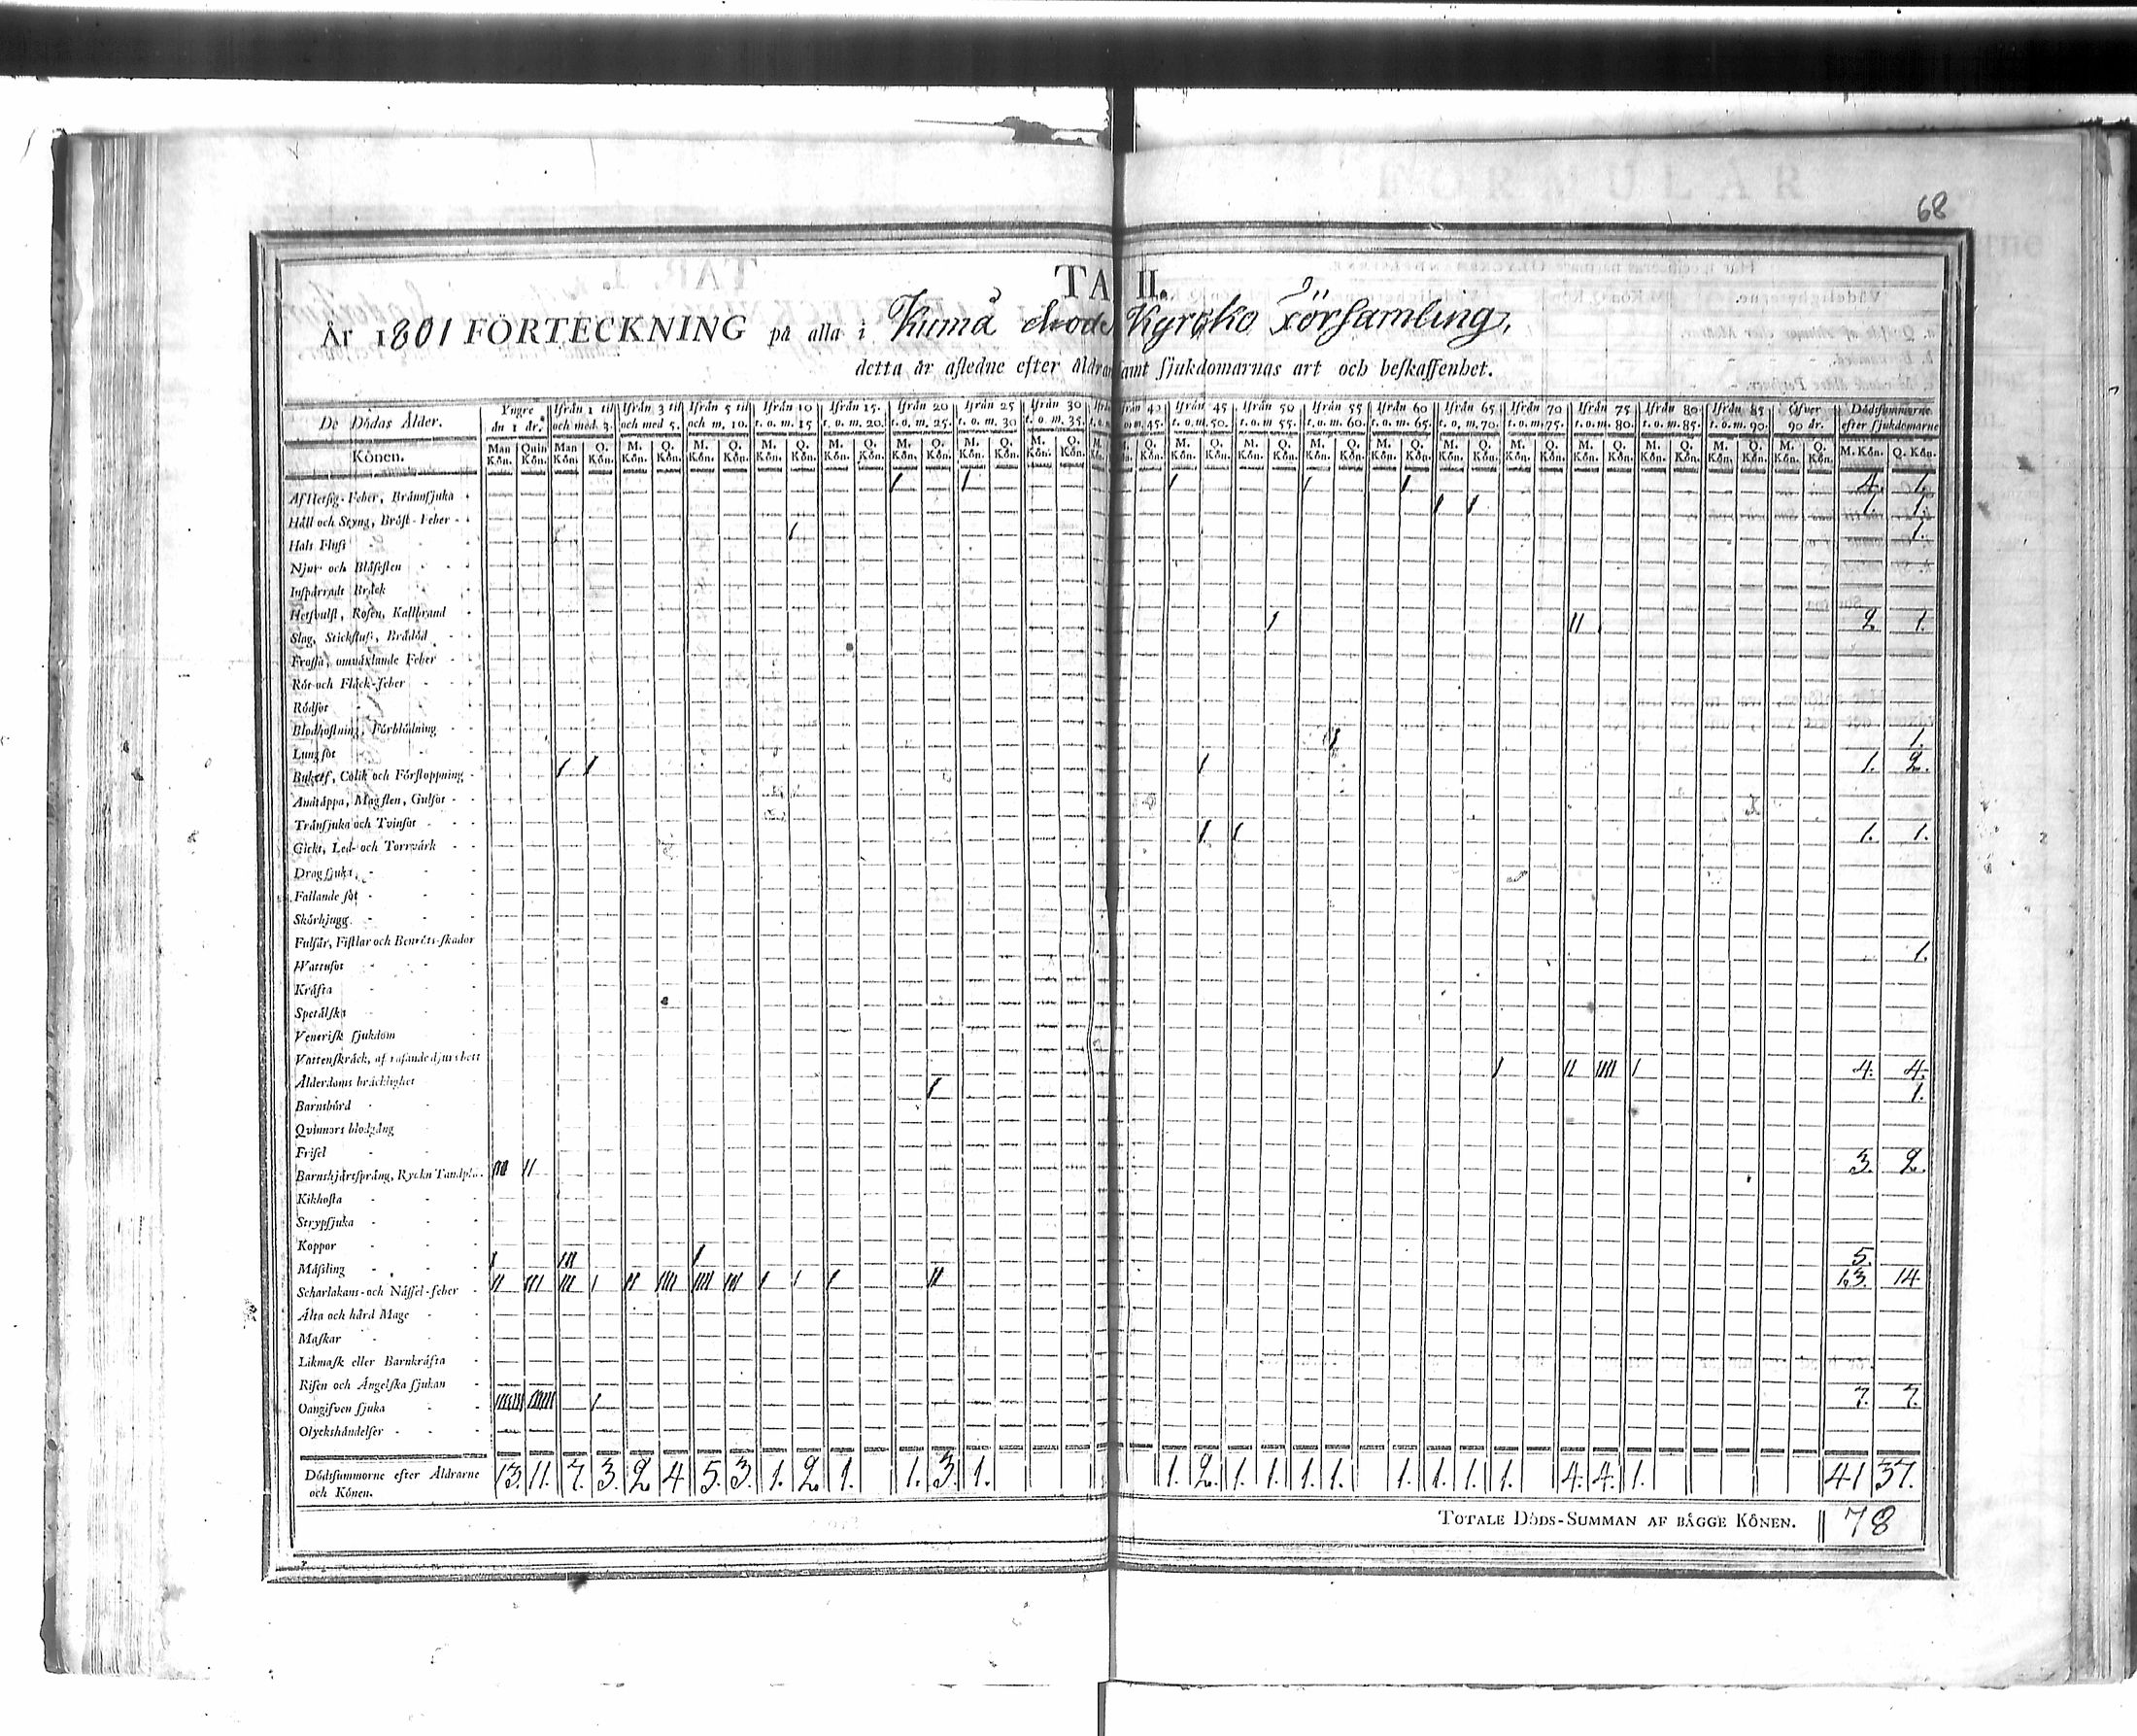 68
TA II.
År 1801 FÖRTECKNING på alla i Kumå Kyrcko Församling,
detta år afledne efter åldrar samt sjukdomarnas art och beskaffenhet.
De Dödas Ålder. Yngre än 1 år. Ifrån 1 til och med 3. Ifrån 3 til och med 5. Ifrån 5 til och m, 10. Ifrån 10 t. o. m. 15 Ifrån 15. t. o. m. 20. Ifrån 20 t. o. m. 25. Ifrån 25 t. o. m. 30 Ifrån 30 t. o. m. 35. 40 t. o. m. 45. Ifrån 45 t. o. m. 50. Ifrån 50 t. o. m 55. Ifrån 55 t. o. m. 60. Ifrån 60 t. o. m. 65. Ifrån 65 t. o, m, 70. Ifrån 70 t. o. m. 75. Ifrån 75 t. o. m. 80. Ifrån 80 t. o. m. 85. Ifrån 85 t. o. m. 90. öfver 90 år. Dödssummorne efter sjukdomarne
Könen. Man Kön. Quin Kön. Man Kön. Q. Kön. M. Kön. Q. Kön. M. Kön. Q. Kön. M. Kön. Q. Kön. M. Kön. Q. Kön. M. Kön. Q. Kön. M. Kön. Q. Kön. M. Kön. Q. Kön. M. Kön. Q. Kön. M. Kön. Q. Kön. M. Kön. Q. Kön. M. Kön. Q. Kön. M. Kön. Q. Kön. M. Kön. Q. Kön. M. Kön. Q. Kön. M. Kön. Q. Kön. M. Kön. Q. Kön. M. Kön. Q. Kön. M. Kön. Q. Kön.
Af Hetsig-Feber, Brännsjuka 1 1 1 1 1 4. 1.
Håll och Styng, Bröst-Feber 1 1 1. 1.
Hals Fluss 1 1.
Njur- och Blåsesten
Inspärradt Bråck
Hetsvulst, Rosen, Kallbrand
Slag, Stickfluss, Brådöd 1 II 2 1.
Frossa, omväxlande Feber
Röt- och Fläck-feber
Rödsot
Blodhostning, Förblödning
Lungsot 1 1.
Bukref, Colik och Förstoppning 1 1 1 1. 2.
Andtäppa, Magsten, Gulsot
Tränsjuka och Tvinsot
Gickt, Led- och Torrvärk 1 1 1. 1.
Dragsjuka
Fallande sot
Skörbjugg
Fulsår, Fistlar och Benröts-skador
Wattusot 1.
Kräfta
Spetälska
Venerisk sjukdom
Vattenskräck, af rasande djurs bett
Ålderdoms bräcklighet 1 II IIII 1 4. 4.
Barnsbörd 1 1.
Qvinnors blodgång
Frisel
Barnshjärtsprång, Ryckn Tandpl. III II 3. 2.
Kikhosta
Strypsjuka
Koppor
Mässling 1 III 1 5.
Scharlakans- och Nässel-feber II III III 1 II IIII IIII III 1 1 1 II 13. 14
Älta och hård Mage
Maskar
Likmask eller Barnkräfta
Risen och Ängelska sjukan
Oangifven sjuka IIIIIII IIIIII 1 7. 7.
Olyckshändelser
Dödssummorne efter Åldrarne och Könen. 13. 11. 7. 3. 2 4 5. 3. 1. 2. 1. 1. 3. 1. 1. 2. 1. 1. 1. 1. 1. 1. 1. 1. 4. 4. 1. 41 37.
TOTALE DÖDS-SUMMAN AF BÅGGE KÖNEN. 78